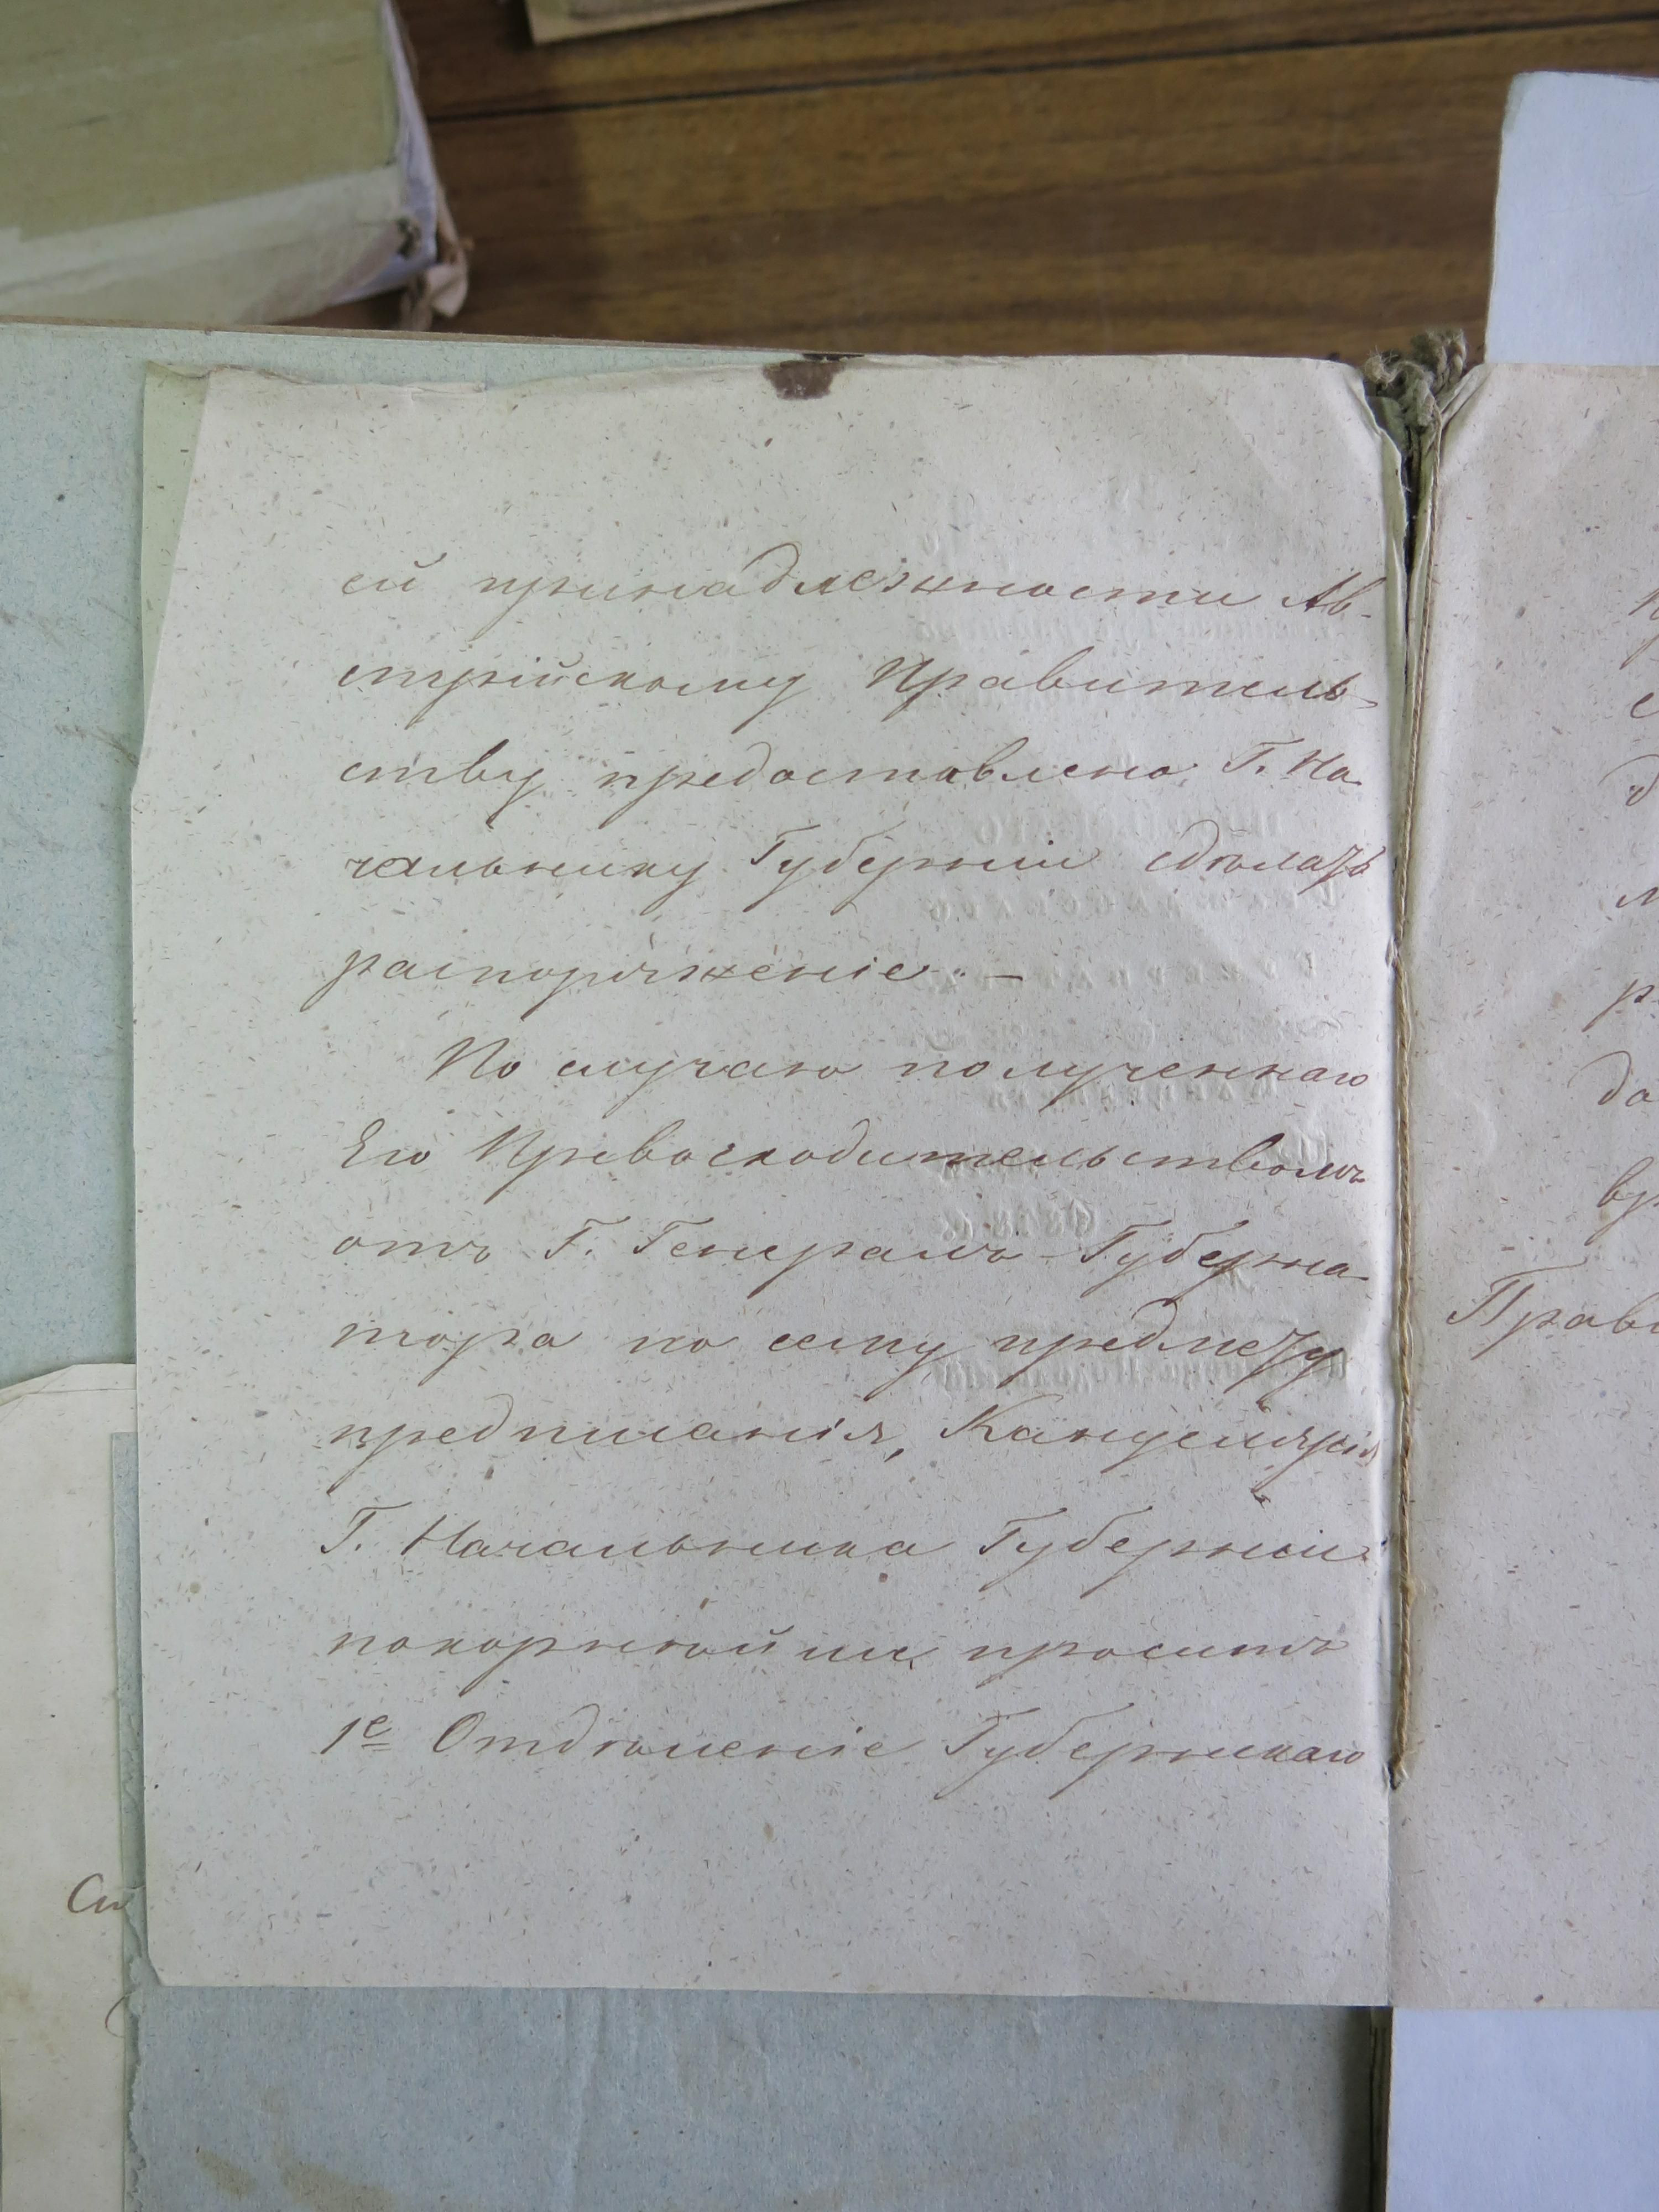 ей принадлежности Ав-
стрійскому Правитель-
ству предоставлено Г. На-
чальнику Губерніи сдѣлать
распоряженіе. —
По случаю полученнаго
Его Превосходительствомъ
отъ Г. Генералъ-Губерна-
тора по сему предмету
предписанія, Канцелярія
Г. Начальника Губерніи
покорнѣйше проситъ
1е Отдѣленіе Губернскаго
Прав